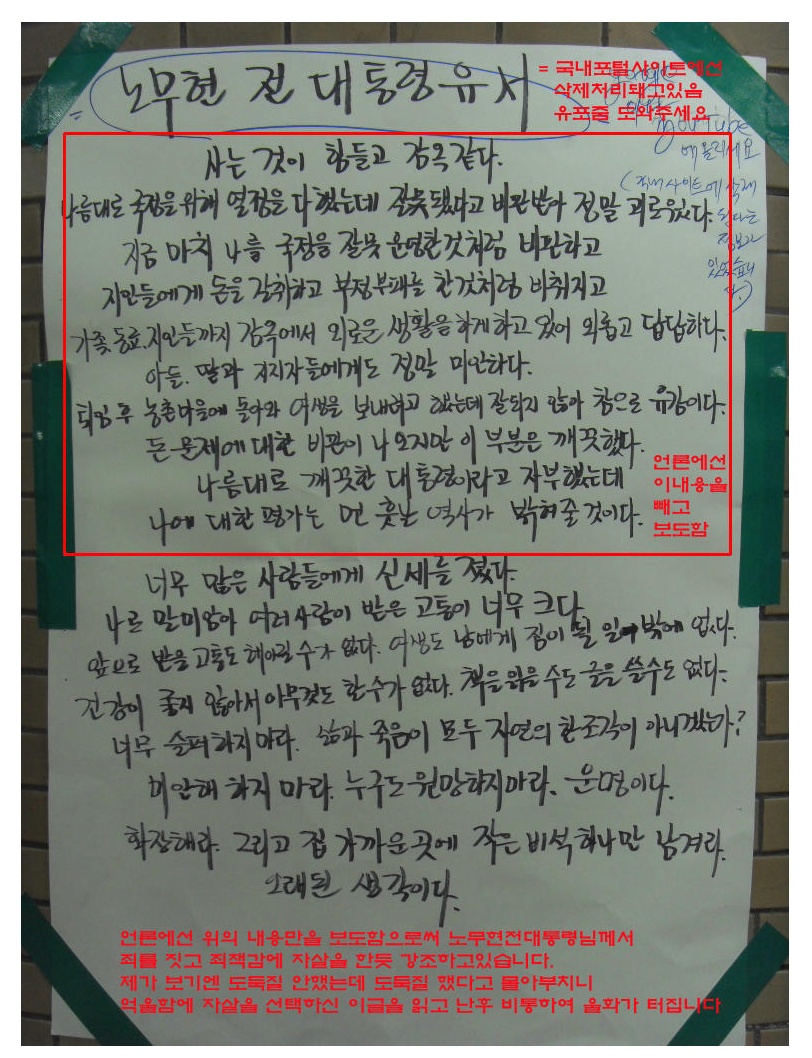 노무현 전 대통령 유서
= 국내포털사이트에선
삭제처리돼고있음
유포좀 도와주세요
YouTube
에 올리세요
(국내 사이트에 삭제
된다는
정보가
있었습니
다.)
사는 것이 힘들고 감옥같다.
나름대로 국정을 위해 열정을 다했는데 잘못됐다고 비판받아 정말 괴로웠다.
지금 마치 나를 국정을 잘못 운영한것처럼 비판하고
지인들에게 돈을 갈취하고 부정부패를 한것처럼 비춰지고
가족, 동료, 지인들까지 감옥에서 외로운 생활을 하게 하고 있어 외롭고 답답하다.
아들, 딸과 지지자들에게도 정말 미안하다.
퇴임 후 농촌마을에 돌아와 여생을 보내려고 했는데 잘되지 않아 참으로 유감이다.
돈 문제에 대한 비판이 나오지만 이 부분은 깨끗했다.
나름대로 깨끗한 대통령이라고 자부했는데
나에 대한 평가는 먼 훗날 역사가 밝혀줄 것이다.
언론에선
이내용을
빼고
보도함
너무 많은 사람들에게 신세를 졌다.
나로 말미암아 여러사람이 받은 고통이 너무 크다.
앞으로 받을 고통도 헤아릴 수가 없다. 여생도 남에게 짐이 될 일 밖에 없다.
건강이 좋지 않아서 아무것도 할수가 없다. 책을 읽을 수도 글을 쓸수도 없다.
너무 슬퍼하지마라. 삶과 죽음이 모두 자연의 한조각이 아니겠는가?
미안해 하지 마라. 누구도 원망하지마라. 운명이다.
화장해라. 그리고 집 가까운 곳에 작은 비석 하나만 남겨라.
오래된 생각이다.
언론에선 위의 내용만을 보도함으로써 노무현전대통령님께서
죄를 짓고 죄책감에 자살을 한듯 강조하고있습니다.
제가 보기엔 도둑질 안했는데 도둑질 했다고 몰아부치니
억울함에 자살을 선택하신 이글을 읽고 난후 비통하여 울화가 터집니다